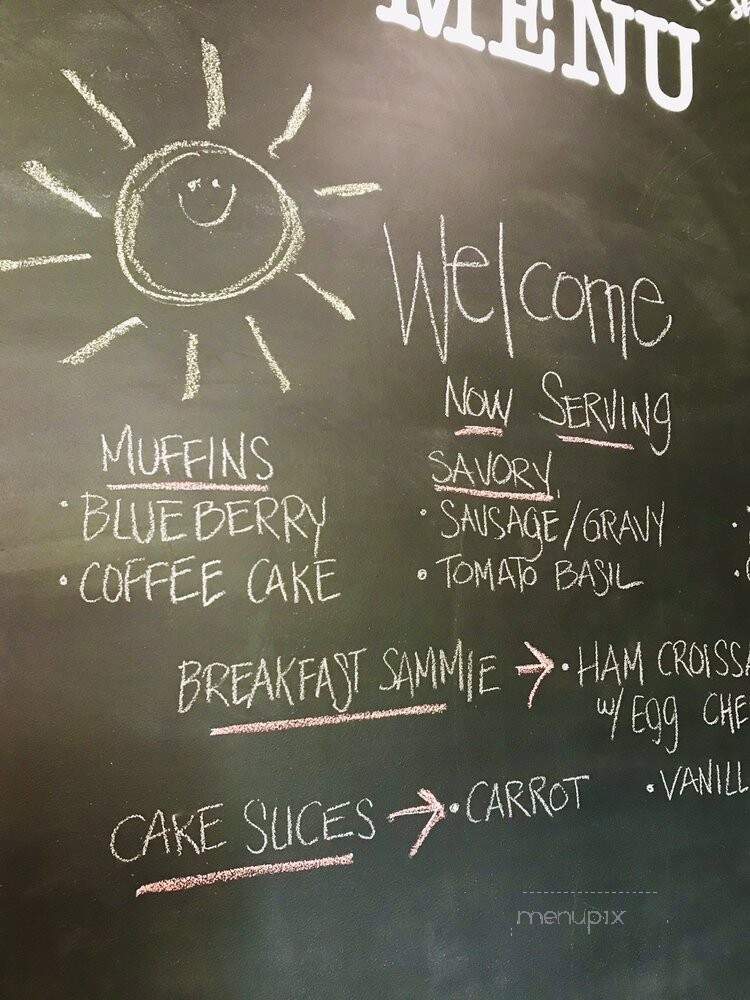 MENU
Welcome
NOW SERVING
MUFFINS
• BLUEBERRY
• COFFEE CAKE
SAVORY
• SAUSAGE/GRAVY
• TOMATO BASIL
BREAKFAST SAMMIE → • HAM CROISSA
w/ EGG CHE
CAKE SLICES → • CARROT • VANILL
menupix